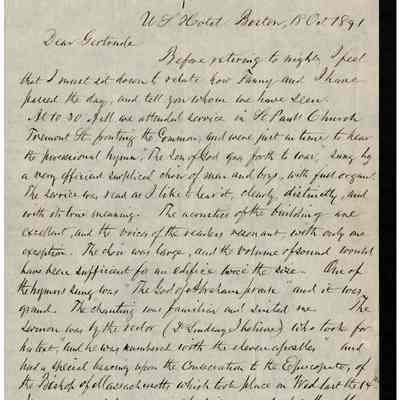 U S Hotel Boston, 18 Oct 1891
Dear Gertrude
Before retiring to night, I feel
that I must sit down & relate how Fanny and I have
passed the day, and tell you whom we have seen.
At 10 30 A.M. we attended service in St Pauls Church
Tremont St. fronting the Common, and were just in time to hear
the processional hymn, "The Son of God goes forth to war," sung by
a very efficient surpliced choir of men and boys, with fust organ.
The service was read as I like to hear it, clearly, distinctly, and
with its true meaning. The acoustics of the building are
excellent, and the voices of the readers resonant, with only one
exception. The choir was large, and the volume of sound would
have been sufficient for an edifice twice the size - One of
the hymns sung was "The God of Abraham praise" and it was
grand. The chanting was familiar and suited me The
sermon was by the rector (D. Lindsay) who took for
his text, "and he was numbered with the eleven apostles" and
had a special bearing upon the Consecration to the Episcopate, of
the Bishop of Massachusetts which took place on Wed last the 14th